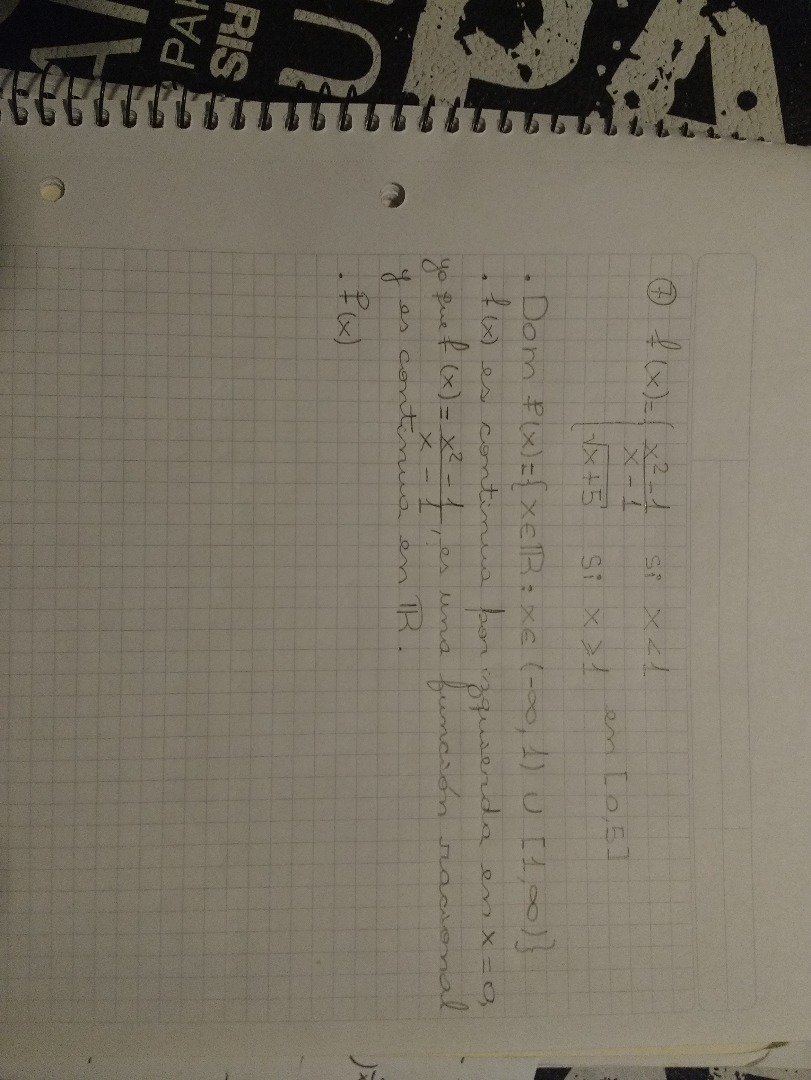 7 f(x)={ x²-1/x-1 si x<1
√x+5 si x≥1 en [0,5]
. Dom f(x)={x∈ℝ: x∈(-∞,1) ∪ [1,∞)}
. f(x) es continua por izquierda en x=0,
ya que f(x)= x²-1/x-1, es una función racional
y es continua en ℝ.
. f(x)
PAR
SIS
U
PA